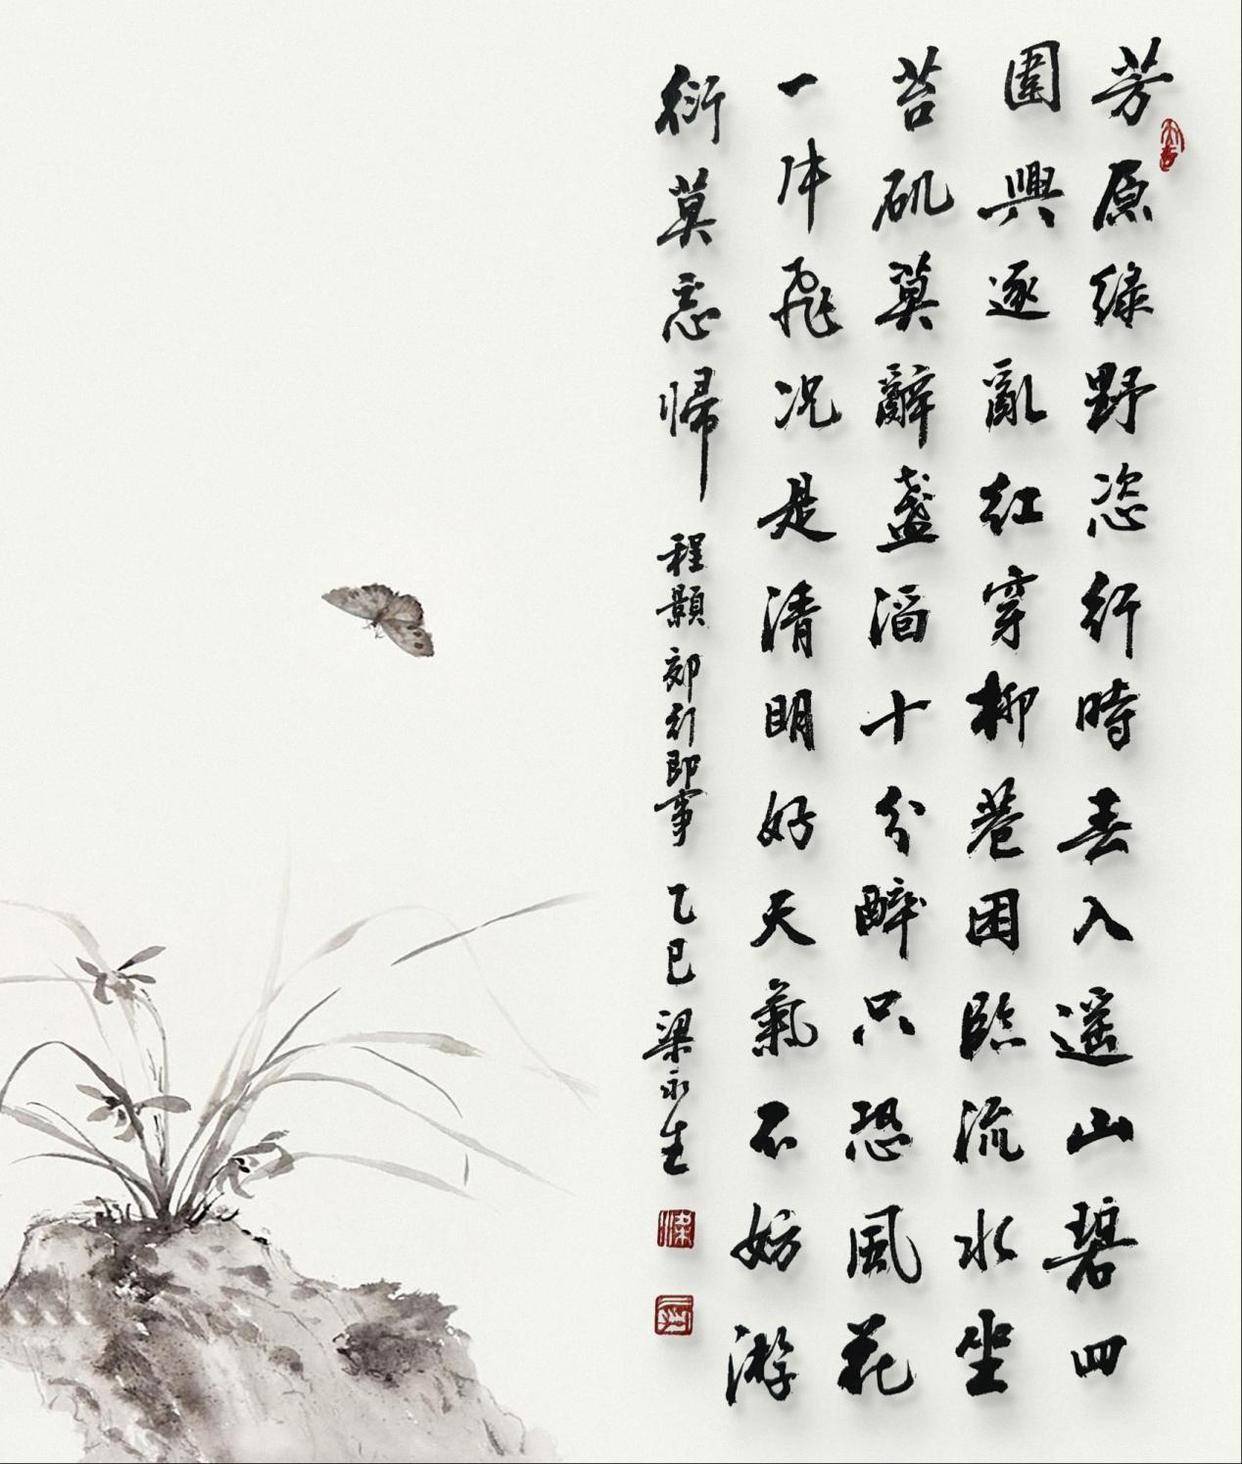 芳原綠野恣行時春入遥山碧四
圍興逐亂紅穿柳巷困臨流水坐
苔矶莫辭盞酒十分醉只恐風花
一片飛况是清明好天氣不妨游
衍莫忘歸 程顥郊行即事 乙巳 梁永生